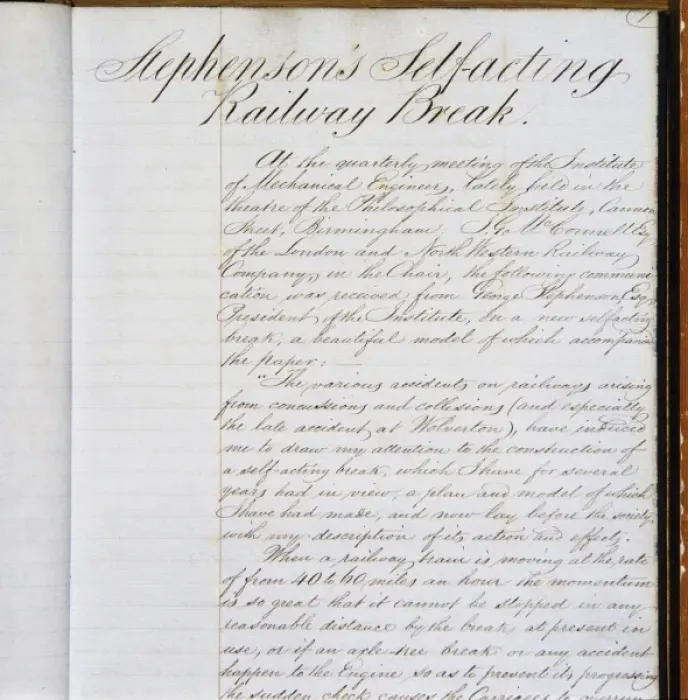 Stephenson's Self-acting
Railway Break.
At the quarterly meeting of the Institute
of Mechanical Engineers, lately held in the
theatre of the Philosophical Institute, Cannon
Street, Birmingham. J. G. McConnell Esq.
of the London and North Western Railway
Company, in the Chair, the following communi
cation was received from George Stephenson, Esq,
President of the Institute, on a new selfacting
break, a beautiful model of which accompanied
the paper: —
"The various accidents on railways arising
from concussions and collisions (and especially
the late accident at Wolverton), have induced
me to draw my attention to the construction of
a self-acting break, which I have for several
years had in view, a plan and model of which
I have had made, and now lay before the society,
with my description of its action and effects.
When a railway train is moving at the rate
of from 40 to 60 miles an hour the momentum
is so great that it cannot be stopped in any
reasonable distance by the break at present in
use, or if an axle-tree break or any accident
happen to the Engine so as to prevent its progressing
the sudden check causes the Carriages to overrun